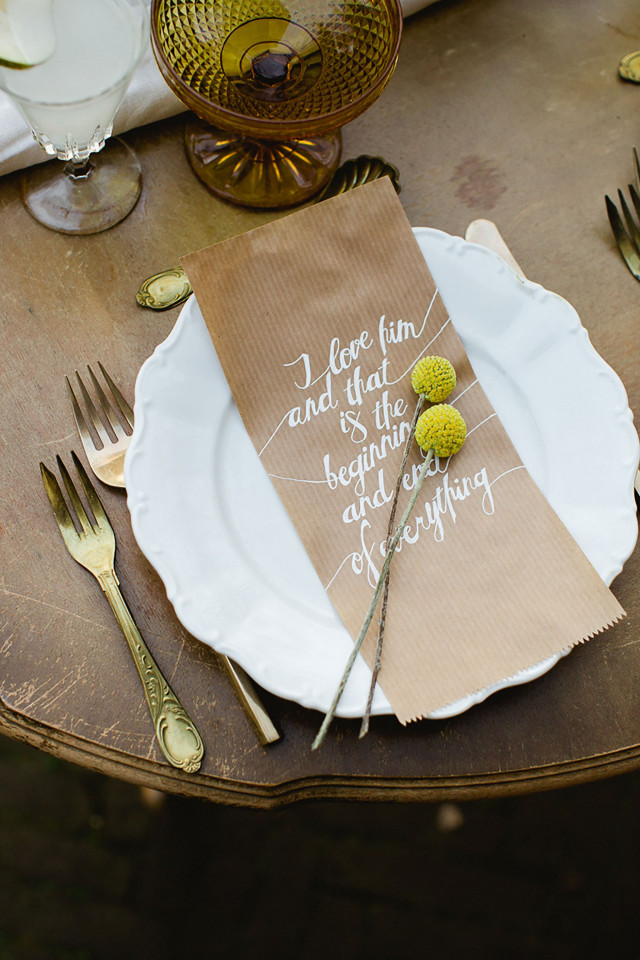 I love him
and that
is the
beginning
and end
of everything